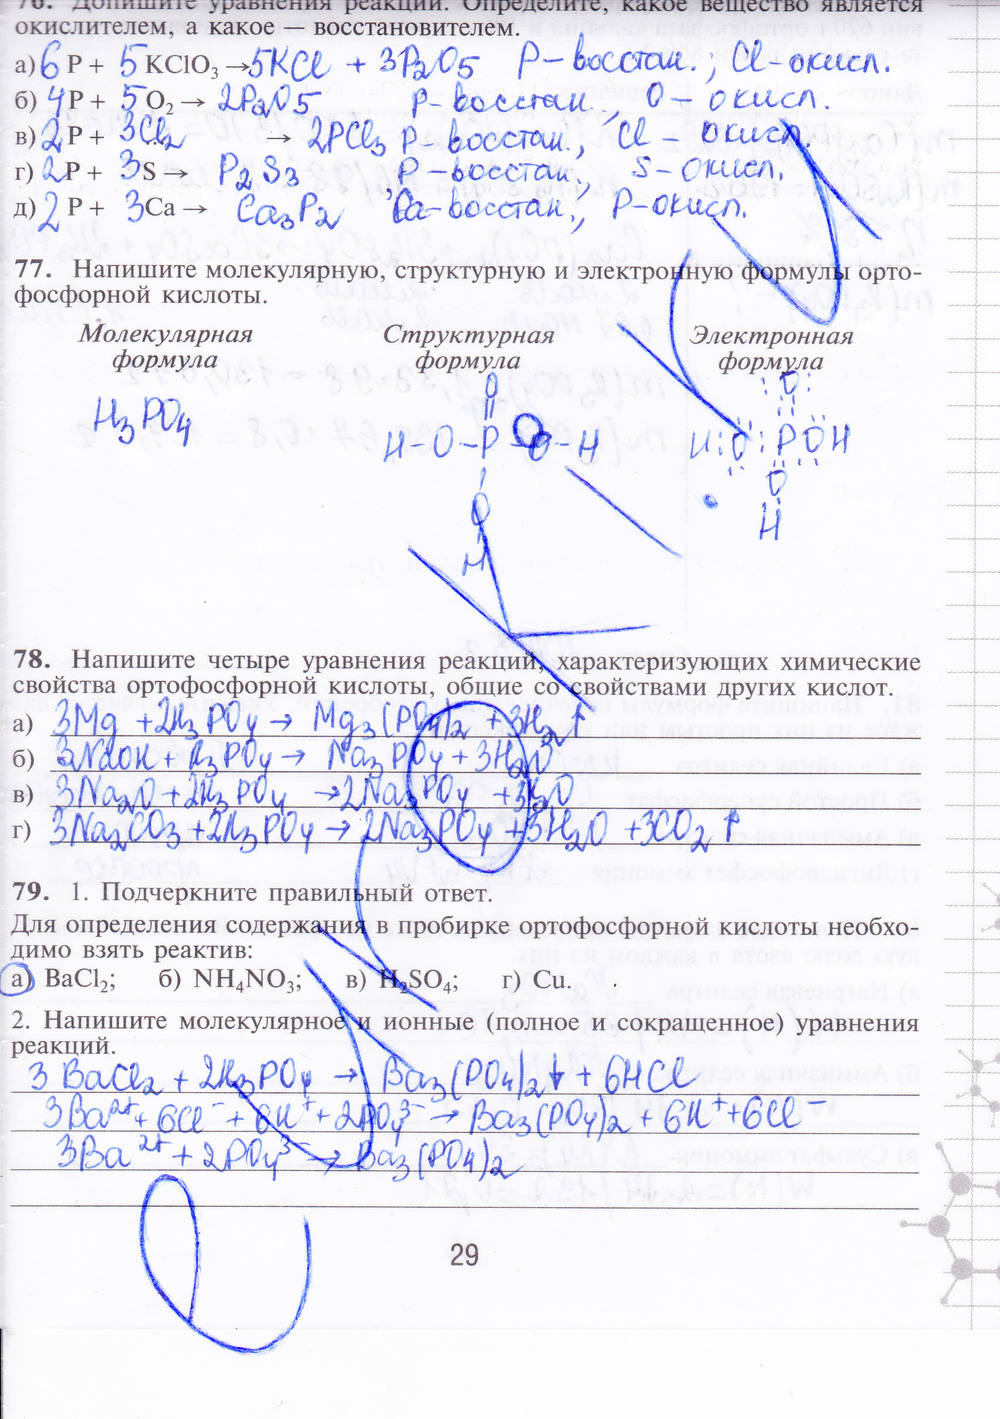 76. Допишите уравнения реакций. Определите, какое вещество является
окислителем, а какое – восстановителем.
а) 6 P + 5 KClO₃ → 5KCl + 3P₂O₅ P – восстан., Cl – окисл.
б) 4 P + 5 O₂ → 2P₂O₅ P – восстан., O – окисл.
в) 2 P + 3Cl₂ → 2PCl₃ P – восстан., Cl – окисл.
г) 2 P + 3 S → P₂S₃ P – восстан., S – окисл.
д) 2 P + 3 Ca → Ca₃P₂ Ca – восстан., P – окисл.
77. Напишите молекулярную, структурную и электронную формулы орто-
фосфорной кислоты.
Молекулярная формула
Структурная формула
Электронная формула
H₃PO₄
O
H – O – P – O – H
O
H
:O:
H :O: P O H
O
H
78. Напишите четыре уравнения реакций, характеризующих химические
свойства ортофосфорной кислоты, общие со свойствами других кислот.
а) 3Mg + 2H₃PO₄ → Mg₃(PO₄)₂ + 3H₂↑
б) 3NaOH + H₃PO₄ → Na₃PO₄ + 3H₂O
в) 3Na₂O + 2H₃PO₄ → 2Na₃PO₄ + 3H₂O
г) 3Na₂CO₃ + 2H₃PO₄ → 2Na₃PO₄ + 3H₂O + 3CO₂↑
79. 1. Подчеркните правильный ответ.
Для определения содержания в пробирке ортофосфорной кислоты необхо-
димо взять реактив:
а) BaCl₂; б) NH₄NO₃; в) H₂SO₄; г) Cu.
2. Напишите молекулярное и ионные (полное и сокращенное) уравнения
реакций.
3BaCl₂ + 2H₃PO₄ → Ba₃(PO₄)₂↓ + 6HCl
3Ba²⁺ + 6Cl⁻ + 6H⁺ + 2PO₄³⁻ → Ba₃(PO₄)₂ + 6H⁺ + 6Cl⁻
3Ba²⁺ + 2PO₄³⁻ → Ba₃(PO₄)₂
29